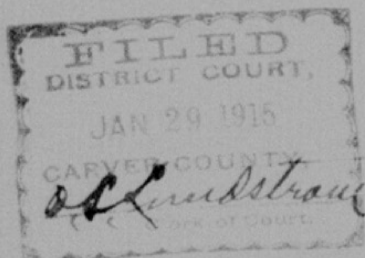 FILED
DISTRICT COURT,
JAN 29 1915
CARVER COUNTY
Lundstrom
Clerk of Court.